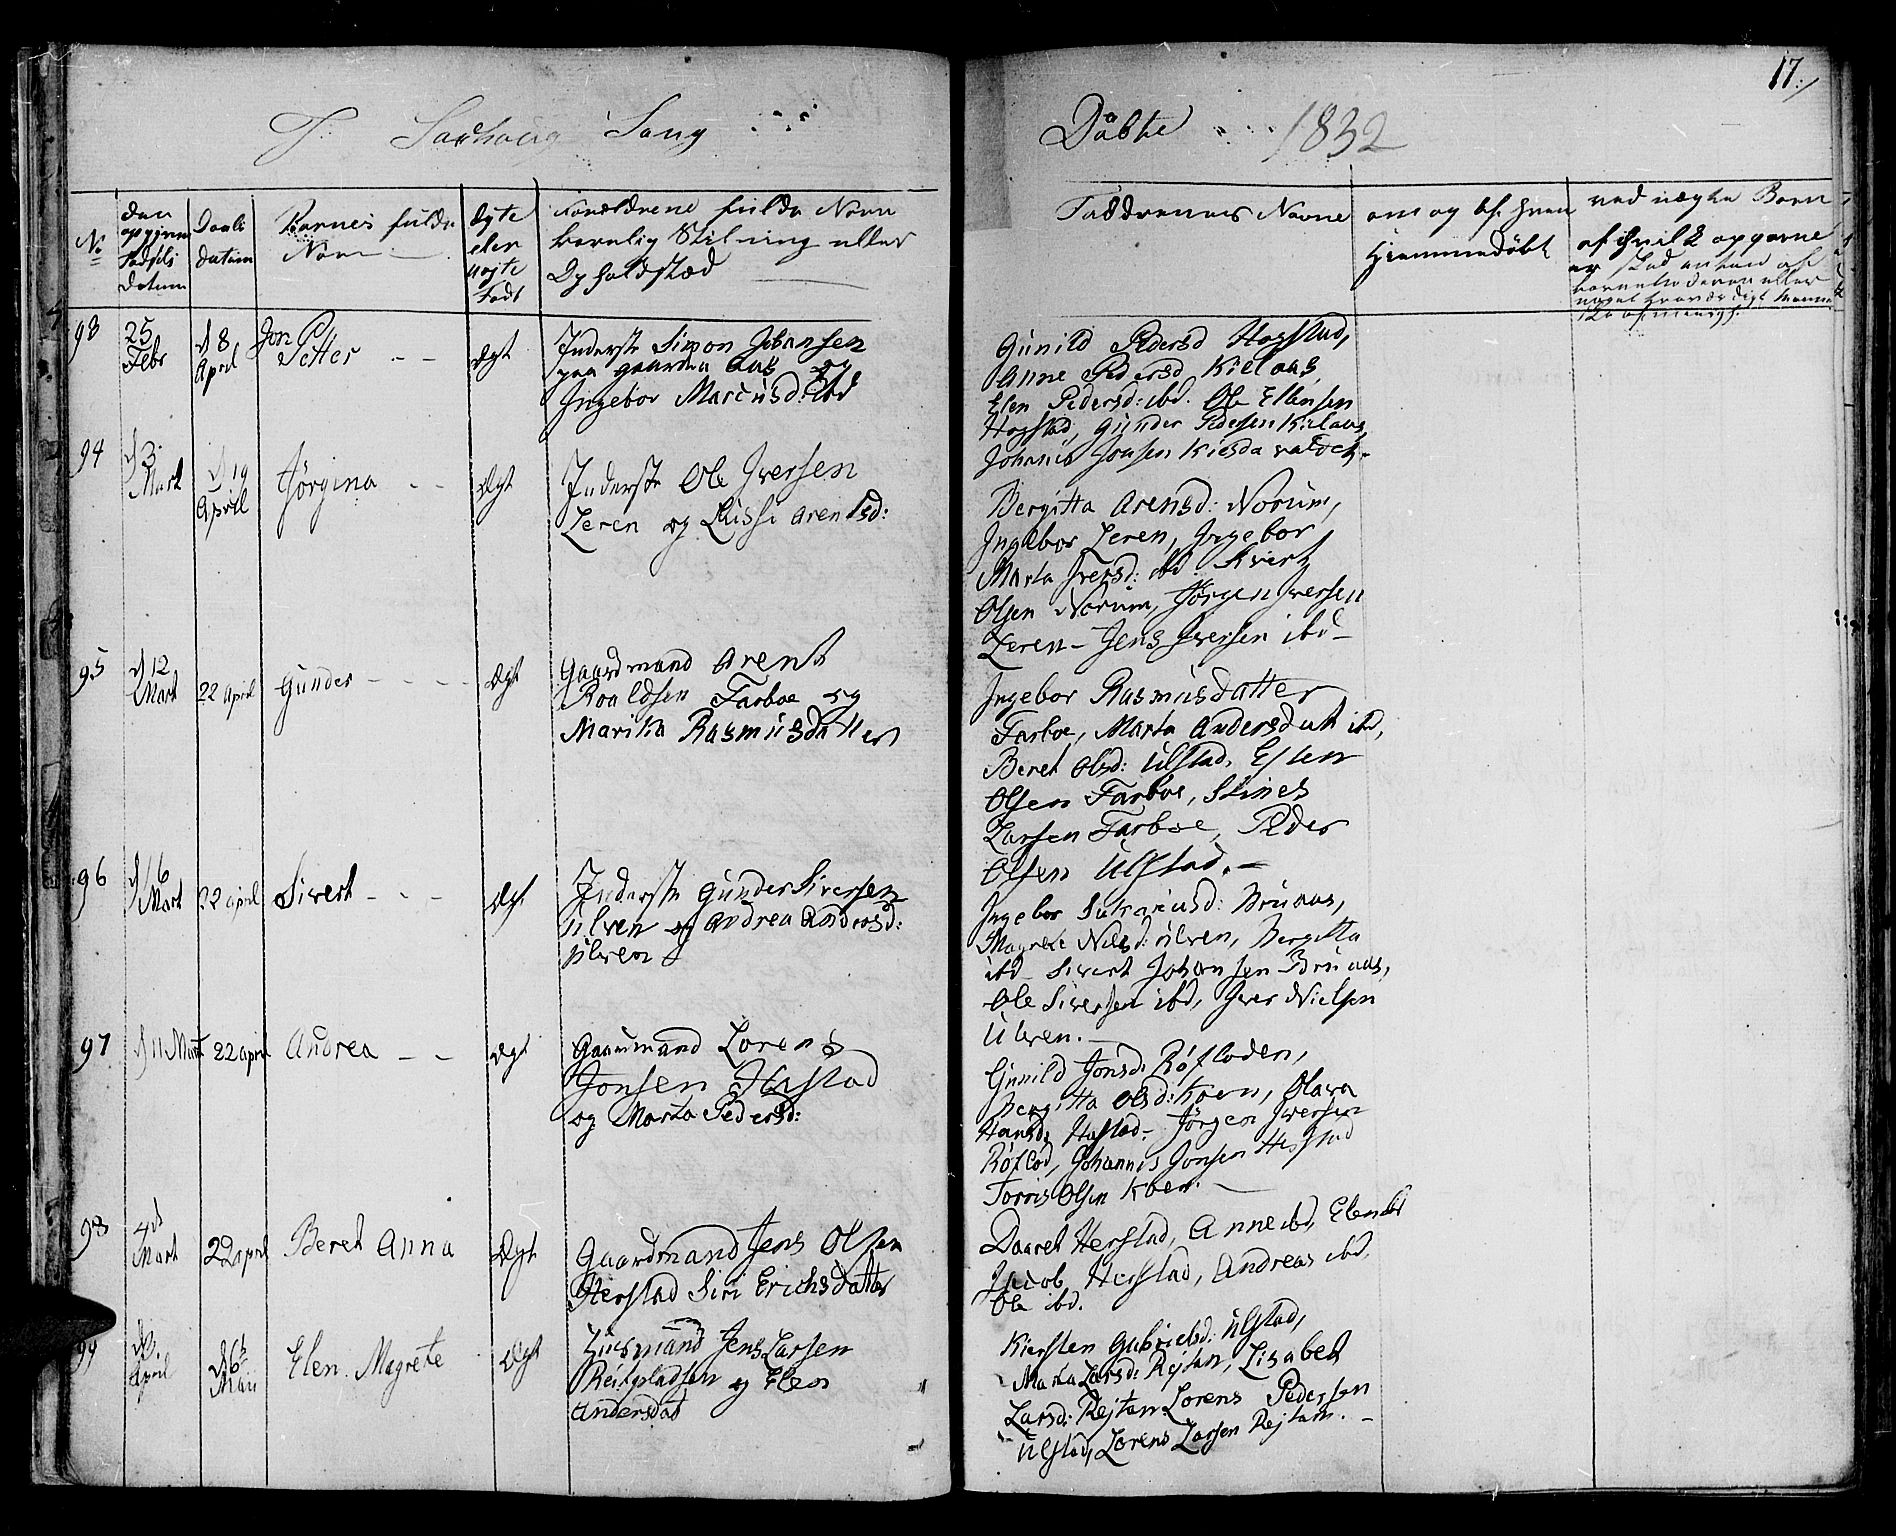 17
Sarhoug Sang
Döbte 1832
No
Daabs
datum
Barnets fulde
Navn
Ægte
eller
uægte
Født
Forældrene fulde Navn
borgelig Stilning eller
Opholdsstæd
Faddrenes Navne
om og af hvem
Hjemmedöbt
ved uægte Born
93
25
Febr
d 8
April
Jon
Petter
Ægt
Inderste Simon Johansen
paa gaarden Aas og
Ingebor Marcusd: ibd
Gunild Pedersd Hogstad,
Anne Pedersd Kielaas
Elen Pedersd: ibd. Ole Ellensen
Hogstad, Gunder Pedersen Kielaas,
Johanis Jonsen
94
d 3
Mart
d 19
April
Jørgina
Ægt
Inderste Ole Iversen
Leren og Lussi Arentsd:
Bergitta Arensd: Norum,
Ingebor Leren, Ingebor
Marta Iversd: ibd. Sivert
Olsen Norum, Jørgen Iversen
Leren - Jens Iversen ibd -
95
d 12
Mart
22 April
Gunder
Ægt
Gaardmand Arent
Roaldsen Farboe og
Marika Rasmusdatter
Ingebor Rasmusdatter
Farboe, Marta Andersdat ibd,
Beret Olsd: Ulstad, Esten
Olsen Farboe, Stines
Larsen Farboe, Peder
Olsen Ulstad. -
96
d 16
Mart
22 april
Sivert
Ægt
Inderste Gunder Siversen
Ulven og Andrea Andersd:
Ulven
Ingebor Sakariusd: Bruaas,
Magrete Nilsd: Ulven, Bergitta
ibd - Sivert Johansen Bruaas,
Ole Siversen ibd, Iver Nielsen
Ulven. -
97
d 11 Mart
22 april
Andrea
Ægt
Gaardmand Lorens
Jonsen Hastad
og Marta Pedersd:
Gunild Jonsd: Røfloden,
Bergitta Olsd: Koen, Olava
Hansd: Hastad - Jørgen Iversen
Røflod, Johannis Jonsen Hastad
Torris Olsen Koen. -
98
4d
Mart
22 april
Beret Anna
Ægt
Gaardmand Jens Olsen
Herstad Siri Erichsdatter
Daaret Herstad, Anne ibd, Elen ibd
Jacob Herstad, Andreas ibd.
Ole ibd.
99
d 3.
April
d 6t
Maii
Elen Magrete
Ægt
Huusmand Jens Larsen
Reitpladsen og Elen
Andersdat
Kiersten Gabrielsd: Ulstad,
Marta Larsd: Rejtan, Lisabet
Larsd: Rejtan Lorens Pedersen
Ulstad, Lorens Larsen Rejtan. -